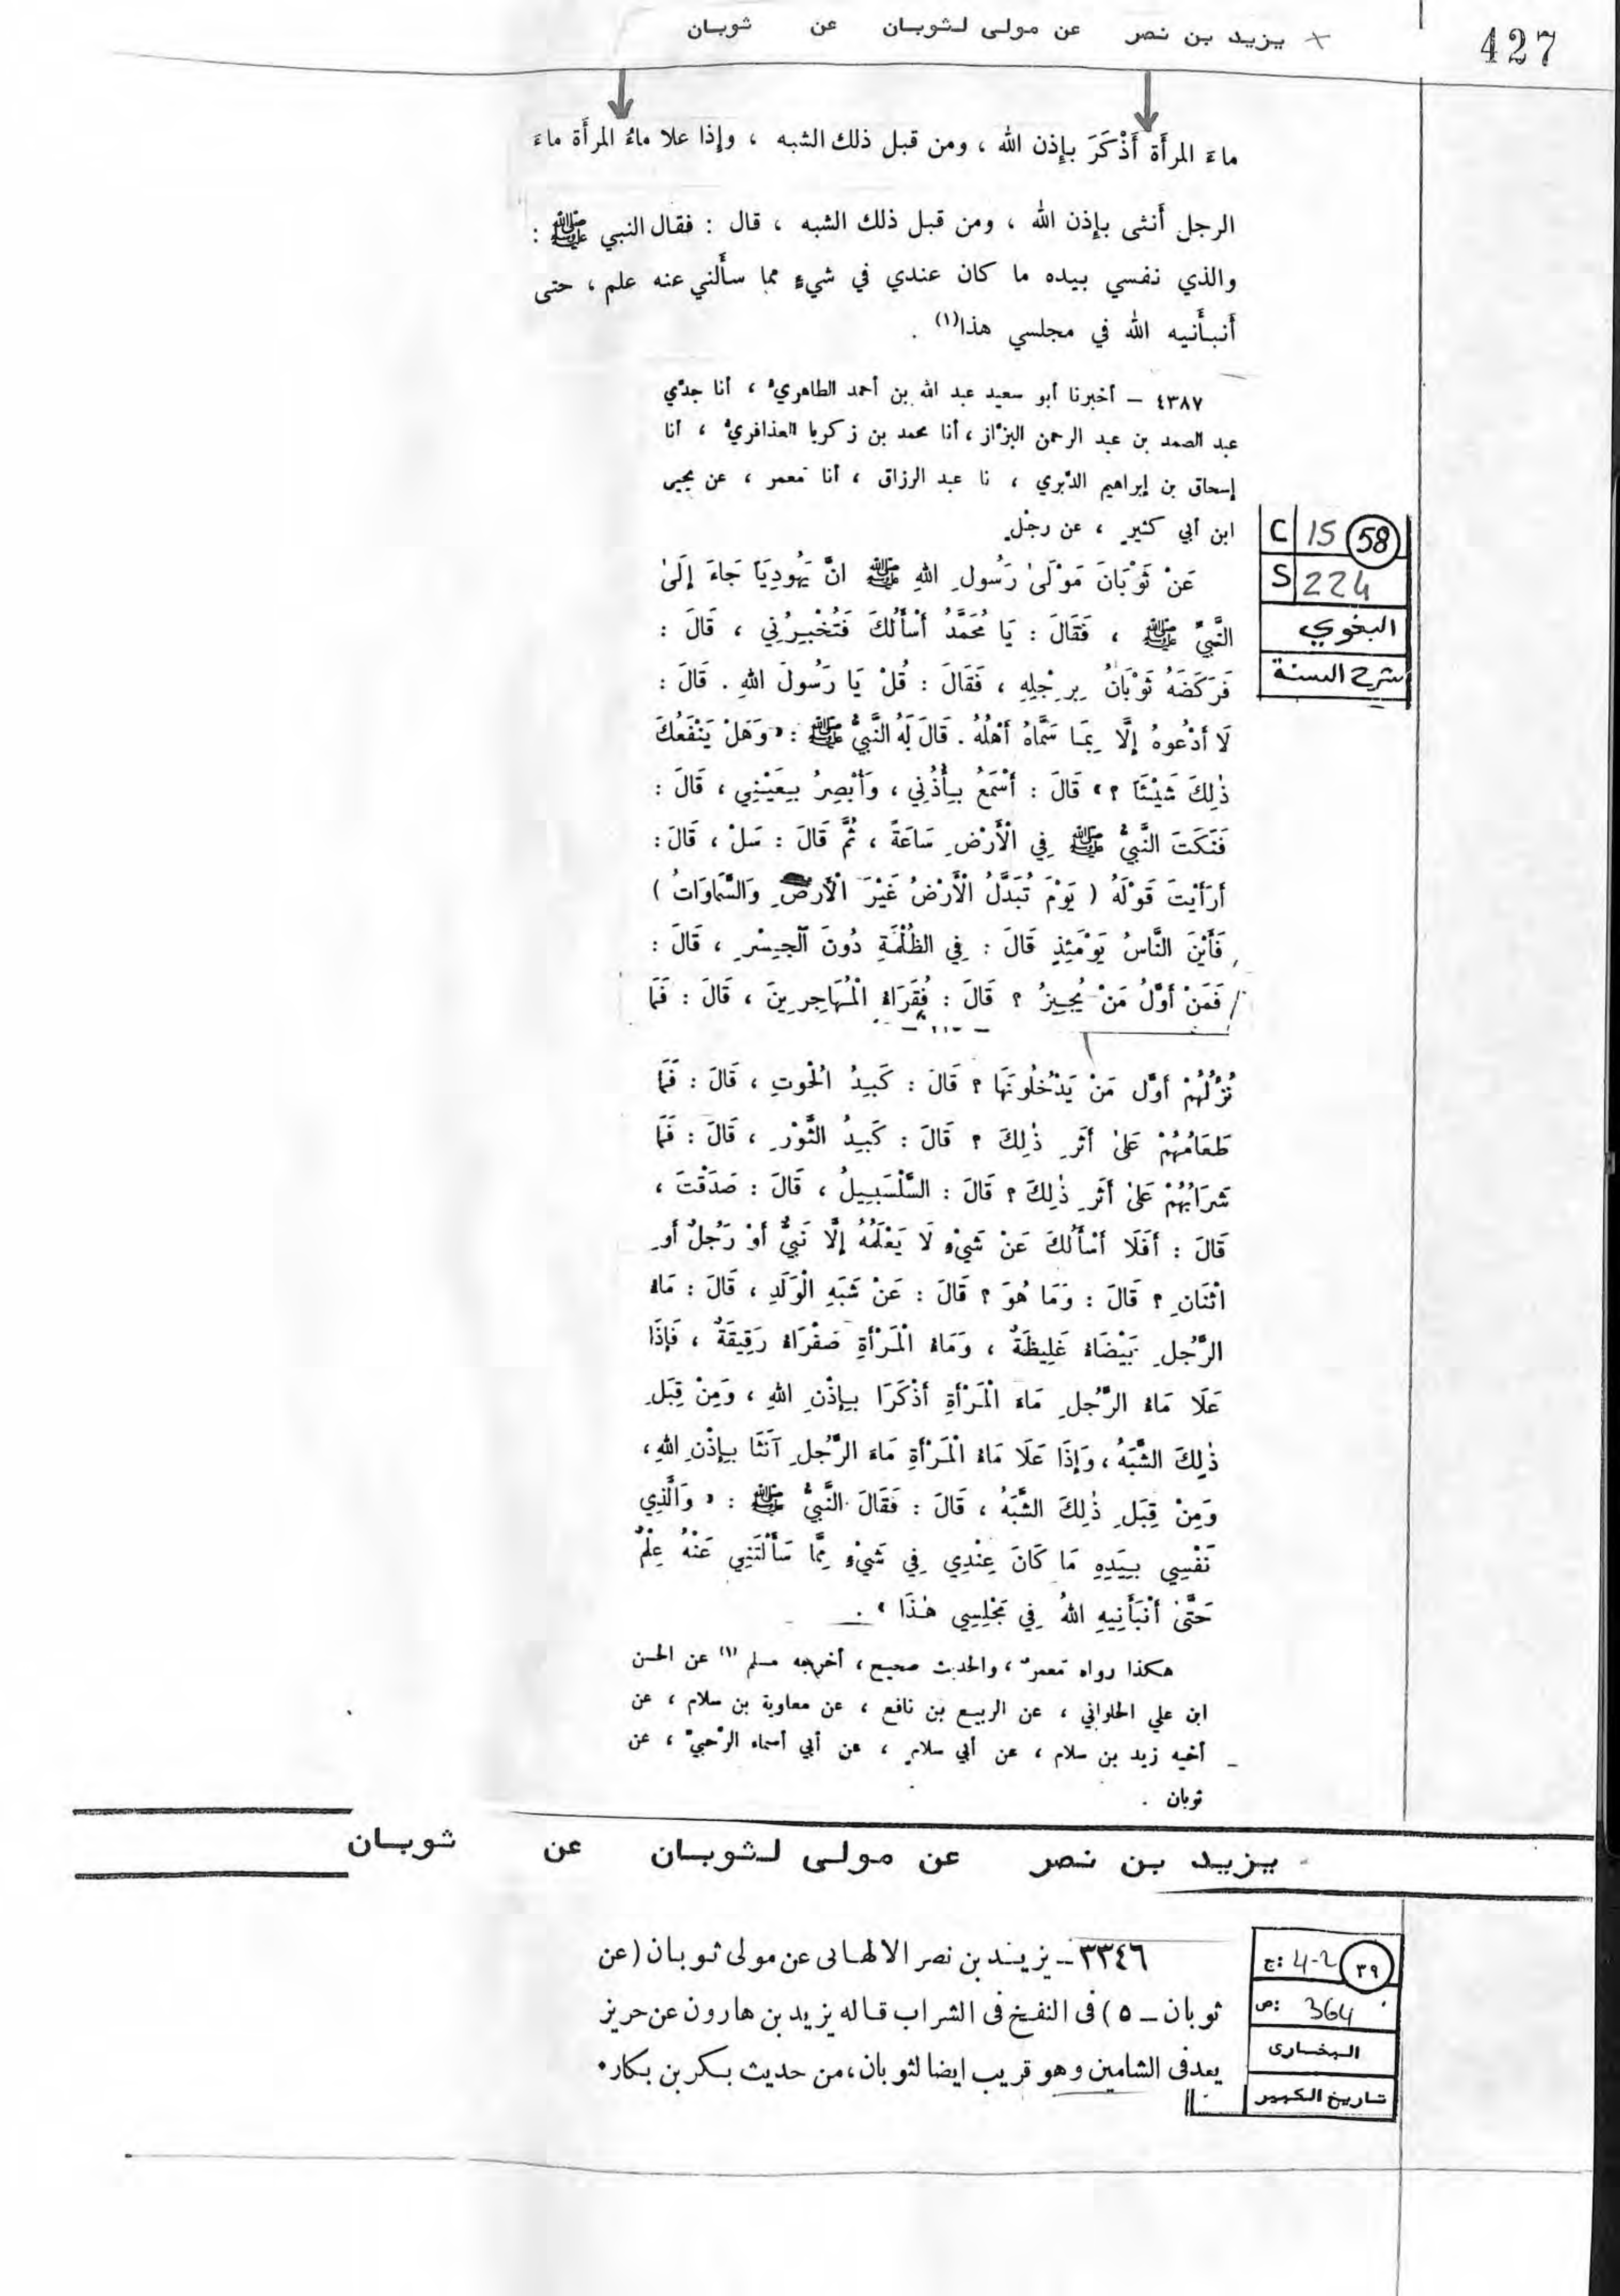 427
يزيد بن نصر عن مولى لـثوبـان عن ثوبـان
ماءَ المرأَة أَذْكَرَ بإِذن الله ، ومن قبل ذلك الشبه ، وإِذا علا ماءُ المرأَة ماءَ
الرجل أَنثى بإِذن الله ، ومن قبل ذلك الشبه ، قال : فقال النبي ﷺ :
والذي نفسي بيده ما كان عندي في شيءٍ مما سأَلني عنه علم ، حتى
أَنبأَنيه الله في مجلسي هذا(١) .
٤٣٨٧ – أخبرنا أبو سعيد عبد الله بن أحمد الطاهريُّ ، أنا جدّي
عبد الصمد بن عبد الرحمن البزّاز ، أنا محمد بن زكريا العذافريُّ ، أنا
إسحاق بن إبراهيم الدَّبري ، نا عبد الرزاق ، أنا مَعمر ، عن يحيى
ابن أبي كثيرٍ ، عن رجلٍ
C 15 58
S 224
البغوي
شرح السنة
عَنْ ثَوْبَانَ مَوْلَىٰ رَسُولِ اللهِ ﷺ انَّ يَهُودِيَّاً جَاءَ إِلَىٰ
النَّبِيِّ ﷺ ، فَقَالَ : يَا مُحَمَّدُ أَسْأَلُكَ فَتُخْبِرُنِي ، قَالَ :
فَرَكَضَهُ ثَوْبَانُ بِرِجْلِهِ ، فَقَالَ : قُلْ يَا رَسُولَ اللهِ . قَالَ :
لَا أَدْعُوهُ إِلَّا بِمَا سَمَّاهُ أَهْلُهُ . قَالَ لَهُ النَّبِيُّ ﷺ : « وَهَلْ يَنْفَعُكَ
ذٰلِكَ شَيْئَاً ؟ » قَالَ : أَسْمَعُ بِأُذُنِي ، وَأُبْصِرُ بِعَيْنِي ، قَالَ :
فَنَكَتَ النَّبِيُّ ﷺ فِي الْأَرْضِ سَاعَةً ، ثُمَّ قَالَ : سَلْ ، قَالَ :
أَرَأَيْتَ قَوْلَهُ ( يَوْمَ تُبَدَّلُ الْأَرْضُ غَيْرَ الْأَرْضِ وَالسَّمَاوَاتُ )
فَأَيْنَ النَّاسُ يَوْمَئِذٍ قَالَ : فِي الظُّلْمَةِ دُونَ الْجِسْرِ ، قَالَ :
فَمَنْ أَوَّلُ مَنْ يُجِيزُ ؟ قَالَ : فُقَرَاءُ الْمُهَاجِرِينَ ، قَالَ : فَمَا
نُزُلُهُمْ أَوَّل مَنْ يَدْخُلُونَهَا ؟ قَالَ : كَبِدُ الْحُوتِ ، قَالَ : فَمَا
طَعَامُهُمْ عَلَىٰ أَثَرِ ذٰلِكَ ؟ قَالَ : كَبِدُ الثَّوْرِ ، قَالَ : فَمَا
شَرَابُهُمْ عَلَىٰ أَثَرِ ذٰلِكَ ؟ قَالَ : السَّلْسَبِيلُ ، قَالَ : صَدَقْتَ ،
قَالَ : أَفَلَا أَسْأَلُكَ عَنْ شَيْءٍ لَا يَعْلَمُهُ إِلَّا نَبِيٌّ أَوْ رَجُلٌ أَوِ
اثْنَانِ ؟ قَالَ : وَمَا هُوَ ؟ قَالَ : عَنْ شَبَهِ الْوَلَدِ ، قَالَ : مَاءُ
الرَّجُلِ بَيْضَاءُ غَلِيظَةٌ ، وَمَاءُ الْمَرْأَةِ صَفْرَاءُ رَقِيقَةٌ ، فَإِذَا
عَلَا مَاءُ الرَّجُلِ مَاءَ الْمَرْأَةِ أَذْكَرَا بِإِذْنِ اللهِ ، وَمِنْ قِبَلِ
ذٰلِكَ الشَّبَهُ ، وَإِذَا عَلَا مَاءُ الْمَرْأَةِ مَاءَ الرَّجُلِ آنَثَا بِإِذْنِ اللهِ ،
وَمِنْ قِبَلِ ذٰلِكَ الشَّبَهُ ، قَالَ : فَقَالَ النَّبِيُّ ﷺ : « وَالَّذِي
نَفْسِي بِيَدِهِ مَا كَانَ عِنْدِي فِي شَيْءٍ مِمَّا سَأَلْتَنِي عَنْهُ عِلْمٌ
حَتَّىٰ أَنْبَأَنِيهِ اللهُ فِي مَجْلِسِي هٰذَا » .
هكذا رواه مَعمرٌ ، والحديث صحيح ، أخرجه مسلم (١) عن الحسن
ابن علي الحلواني ، عن الربيع بن نافع ، عن معاوية بن سلام ، عن
أخيه زيد بن سلام ، عن أبي سلامٍ ، عن أبي أسماء الرَّحبيِّ ، عن
ثوبان .
يـزيـد بـن نـصر عن مولـى لـثوبـان عن ثـوبـان
٣٣٤٦ – يزيـد بن نصر الالهـانى عن مولى ثـوبـان (عن
ثوبان – ٥) فى النفخ فى الشراب قاله يزيد بن هارون عن حريز
يعد فى الشامين وهو قريب ايضا لثوبان ، من حديث بكر بن بكار .
ج: 4-2 ٣٩
ص: 364
البخارى
تاريخ الكبير